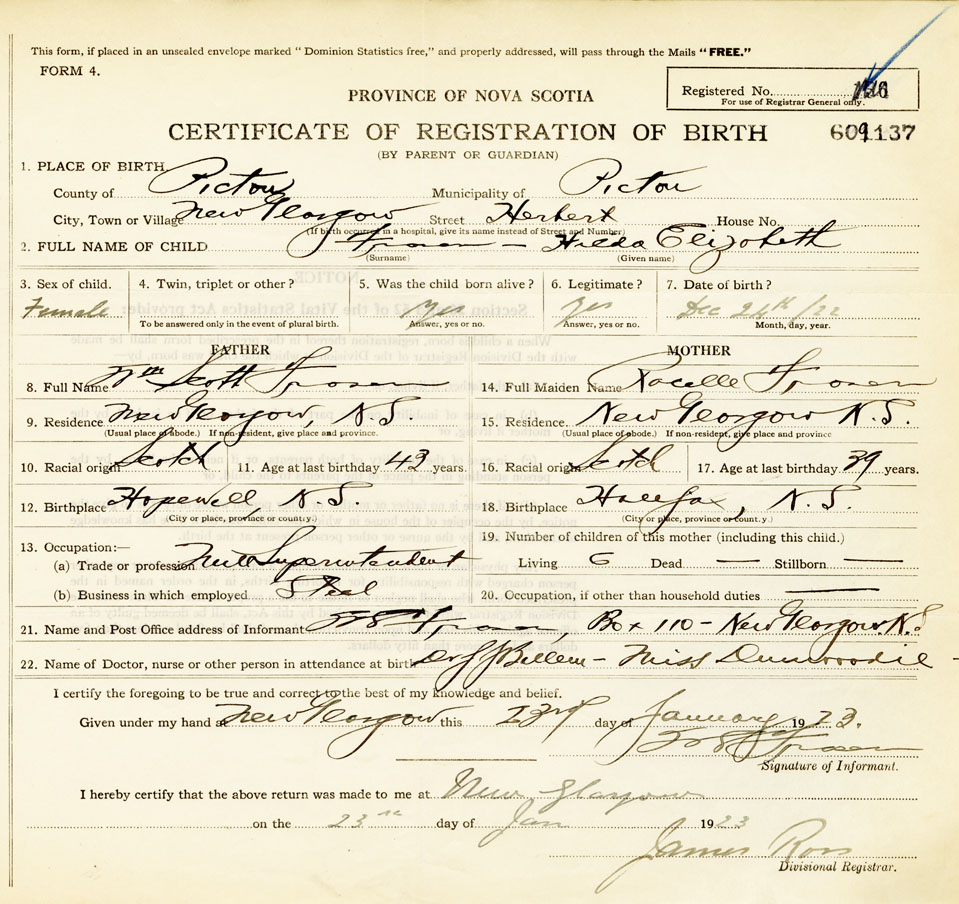 This form, if placed in an unsealed envelope marked "Dominion Statistics free," and properly addressed, will pass through the Mails "FREE."
FORM 4.
Registered No.
For use of Registrar General only.
PROVINCE OF NOVA SCOTIA
CERTIFICATE OF REGISTRATION OF BIRTH
(BY PARENT OR GUARDIAN)
1. PLACE OF BIRTH
County of Pictou Municipality of Pictou
City, Town or Village New Glasgow Street Herbert House No.
(If birth occurred in a hospital, give its name instead of Street and Number)
2. FULL NAME OF CHILD Fraser - Hilda Elizabeth
(Surname) (Given name)
3. Sex of child. 4. Twin, triplet or other? 5. Was the child born alive? 6. Legitimate? 7. Date of birth?
Female Yes Yes Dec 24th /22
To be answered only in the event of plural birth. Answer, yes or no. Answer, yes or no. Month, day, year.
FATHER MOTHER
8. Full Name Wm Scott Fraser 14. Full Maiden Name Roselle Fraser
9. Residence New Glasgow, N.S. 15. Residence. New Glasgow N.S.
(Usual place of abode.) If non-resident, give place and province. (Usual place of abode.) If non-resident, give place and province
10. Racial origin Scotch 11. Age at last birthday 43 years. 16. Racial origin Scotch 17. Age at last birthday 39 years.
12. Birthplace Hopewell, N.S. 18. Birthplace Halifax, N.S.
(City or place, province or country.) (City or place, province or country.)
13. Occupation:— 19. Number of children of this mother (including this child.)
(a) Trade or profession Mill Superintendent Living 6 Dead — Stillborn —
(b) Business in which employed Steel 20. Occupation, if other than household duties —
21. Name and Post Office address of Informant W S Fraser, Box 110 - New Glasgow N.S
22. Name of Doctor, nurse or other person in attendance at birth Dr - Miss Dunwoodie -
I certify the foregoing to be true and correct to the best of my knowledge and belief.
Given under my hand at New Glasgow this 23rd day of January 1923.
W S Fraser
Signature of Informant.
I hereby certify that the above return was made to me at New Glasgow
on the 23rd day of Jan 1923
James Ross
Divisional Registrar.